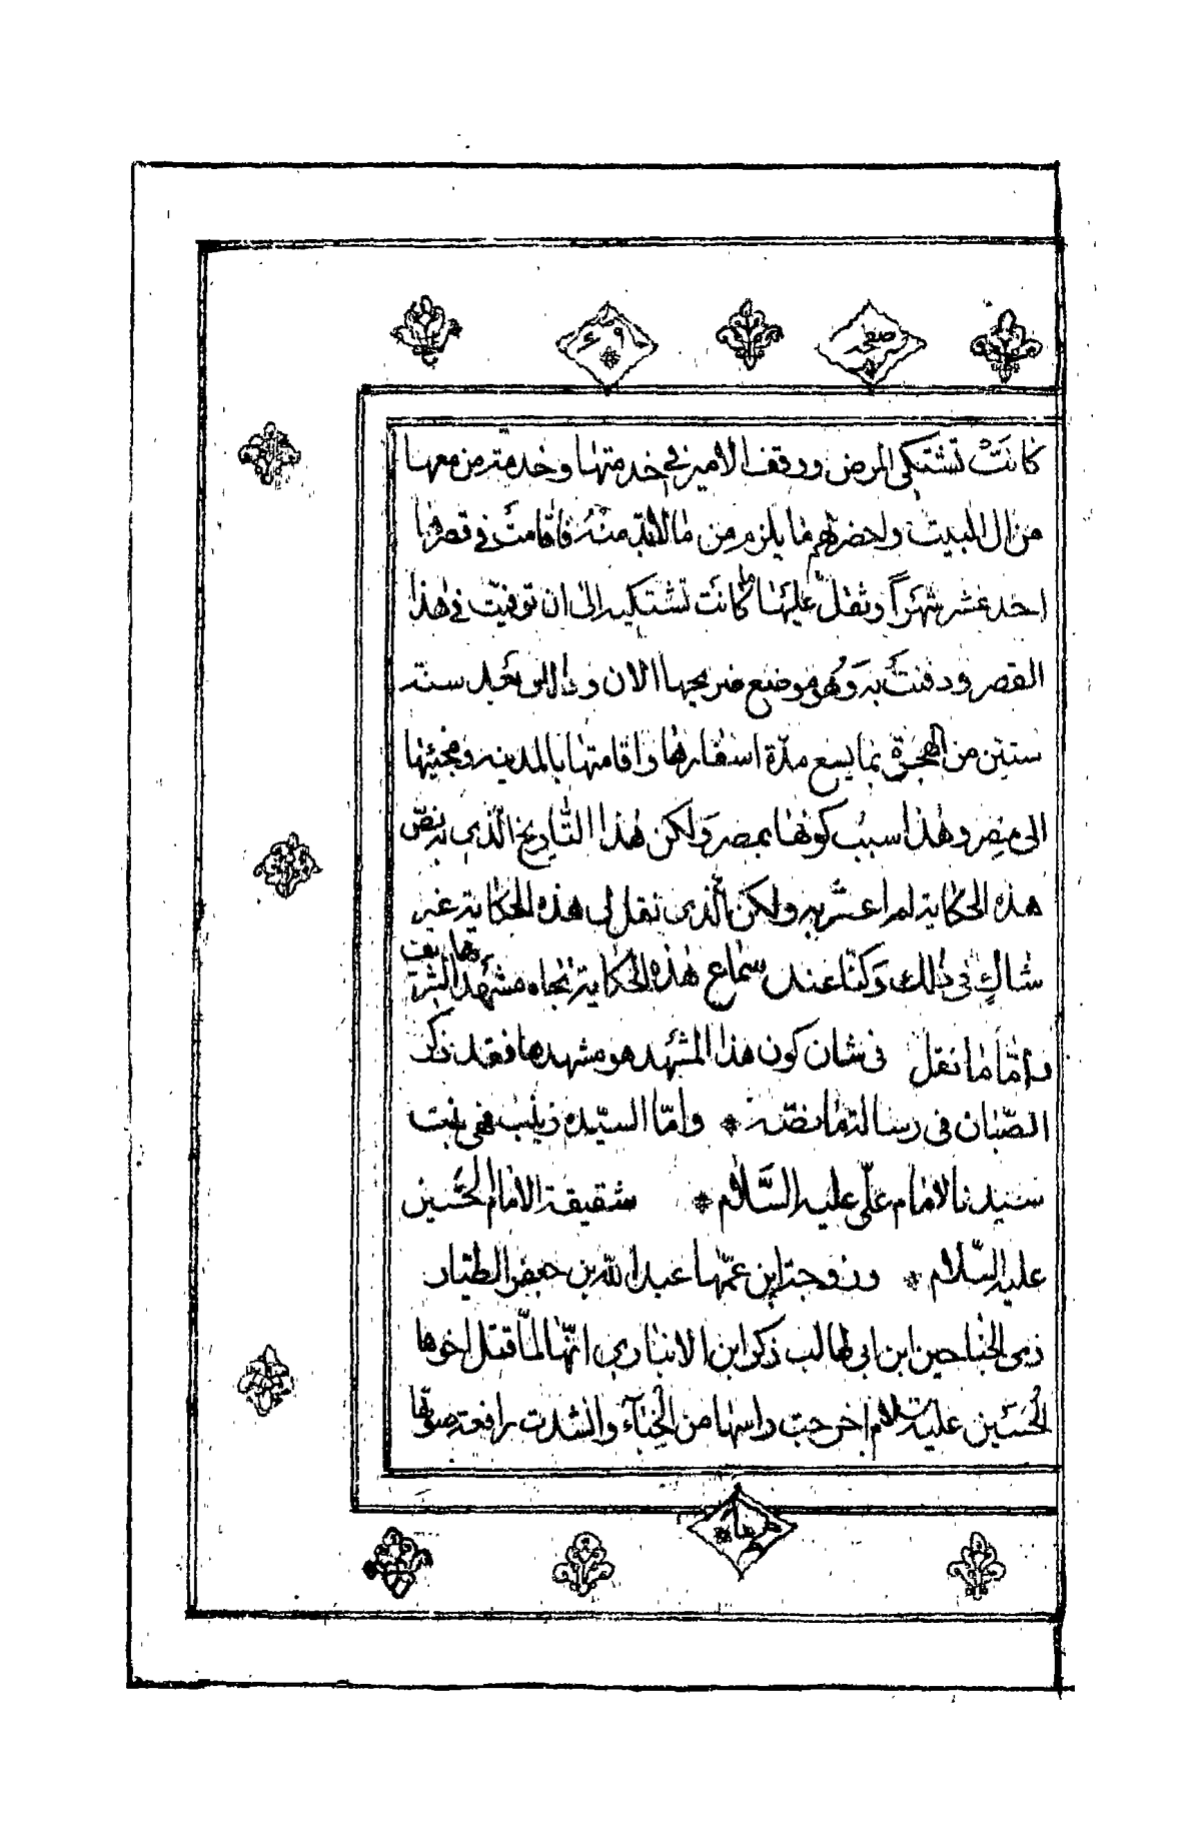 صفحه
كانَتْ تشتكى المرض ووقف الامير فى خدمتها وخدمة من معها
من ال البيت واحضر لهم ما يلزم من ما لابدّ منه فاقامتْ فى قصرها
احد عشر شهراً وثقل عليها ما كانت تشتكيه الى ان توفيّت فى هذا
القصر ودفنتْ به وَهُو موضع ضريحها الان وذلك بَعْد سنة
ستين من الهجرة بما يسع مدّة اسفارها واقامتها بالمدينه ومجيئها
الى مِصر وهذا سبب كونها بمصر وَلكن هذا التّاريخ الّذى به نصّ
هذه الحكاية لم اعثر به ولكن الّذى نقل لى هذه الحكاية غير
شاكٍ فى ذلك وَكنّا عند سماع هذه الحكاية تجاه مشهدها الشريف
وامّا ما نقل فى شان كون هذا المشهد هو مشهدها فقد ذكر
الصّبّان فى رسالته ما نصّه * وامّا السيّده زينب فهى بنت
سيدنا الامام علّى عليه السَّلام * شقيقة الامام الحُسَين
عليه السّلام * وزوجة ابن عمّها عبد الله بن جعفر الطيّار
ذى الجناحين ابن ابى طالب ذكر ابن الانبارى انّها لمّا قتل اخوها
الحُسَين عليه السلام اخرجت راسها من الخِبآء وانشدت رافعة صوتها